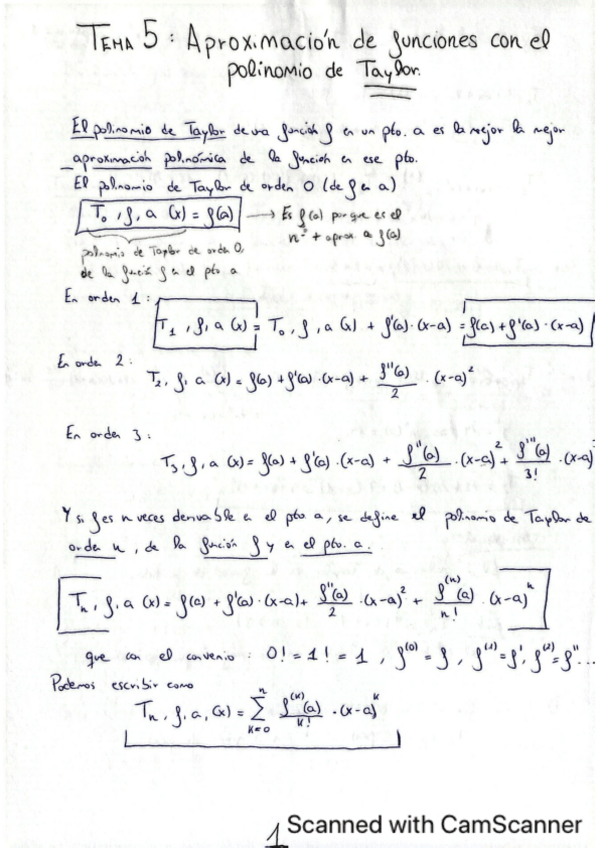 TEMA 5: Aproximación de funciones con el
polinomio de Taylor.
El polinomio de Taylor de una función f en un pto. a es la mejor la mejor
aproximación polinómica de la función en ese pto.
El polinomio de Taylor de orden 0 (de f en a)
T₀, f, a (x) = f(a) → Es f(a) porque es el
nº + aprox a f(a)
polinomio de Taylor de orden 0,
de la función f en el pto a
En orden 1:
T₁, f, a (x) = T₀, f, a (x) + f'(a)·(x-a) = f(a) + f'(a)·(x-a)
En orden 2:
T₂, f, a (x) = f(a) + f'(a)·(x-a) + f''(a)/2 · (x-a)²
En orden 3:
T₃, f, a (x) = f(a) + f'(a)·(x-a) + f''(a)/2 · (x-a)² + f'''(a)/3! · (x-a)
Y si f es n veces derivable en el pto a, se define el polinomio de Taylor de
orden n, de la función f y en el pto. a.
Tₙ, f, a (x) = f(a) + f'(a)·(x-a) + f''(a)/2 · (x-a)² + f⁽ⁿ⁾(a)/n! · (x-a)ⁿ
que con el convenio: 0! = 1! = 1, f⁽⁰⁾ = f, f⁽¹⁾ = f', f⁽²⁾ = f''...
Podemos escribir como
Tₙ, f, a, (x) = Σ k=0 n f⁽ᵏ⁾(a)/k! · (x-a)ᵏ
1 Scanned with CamScanner